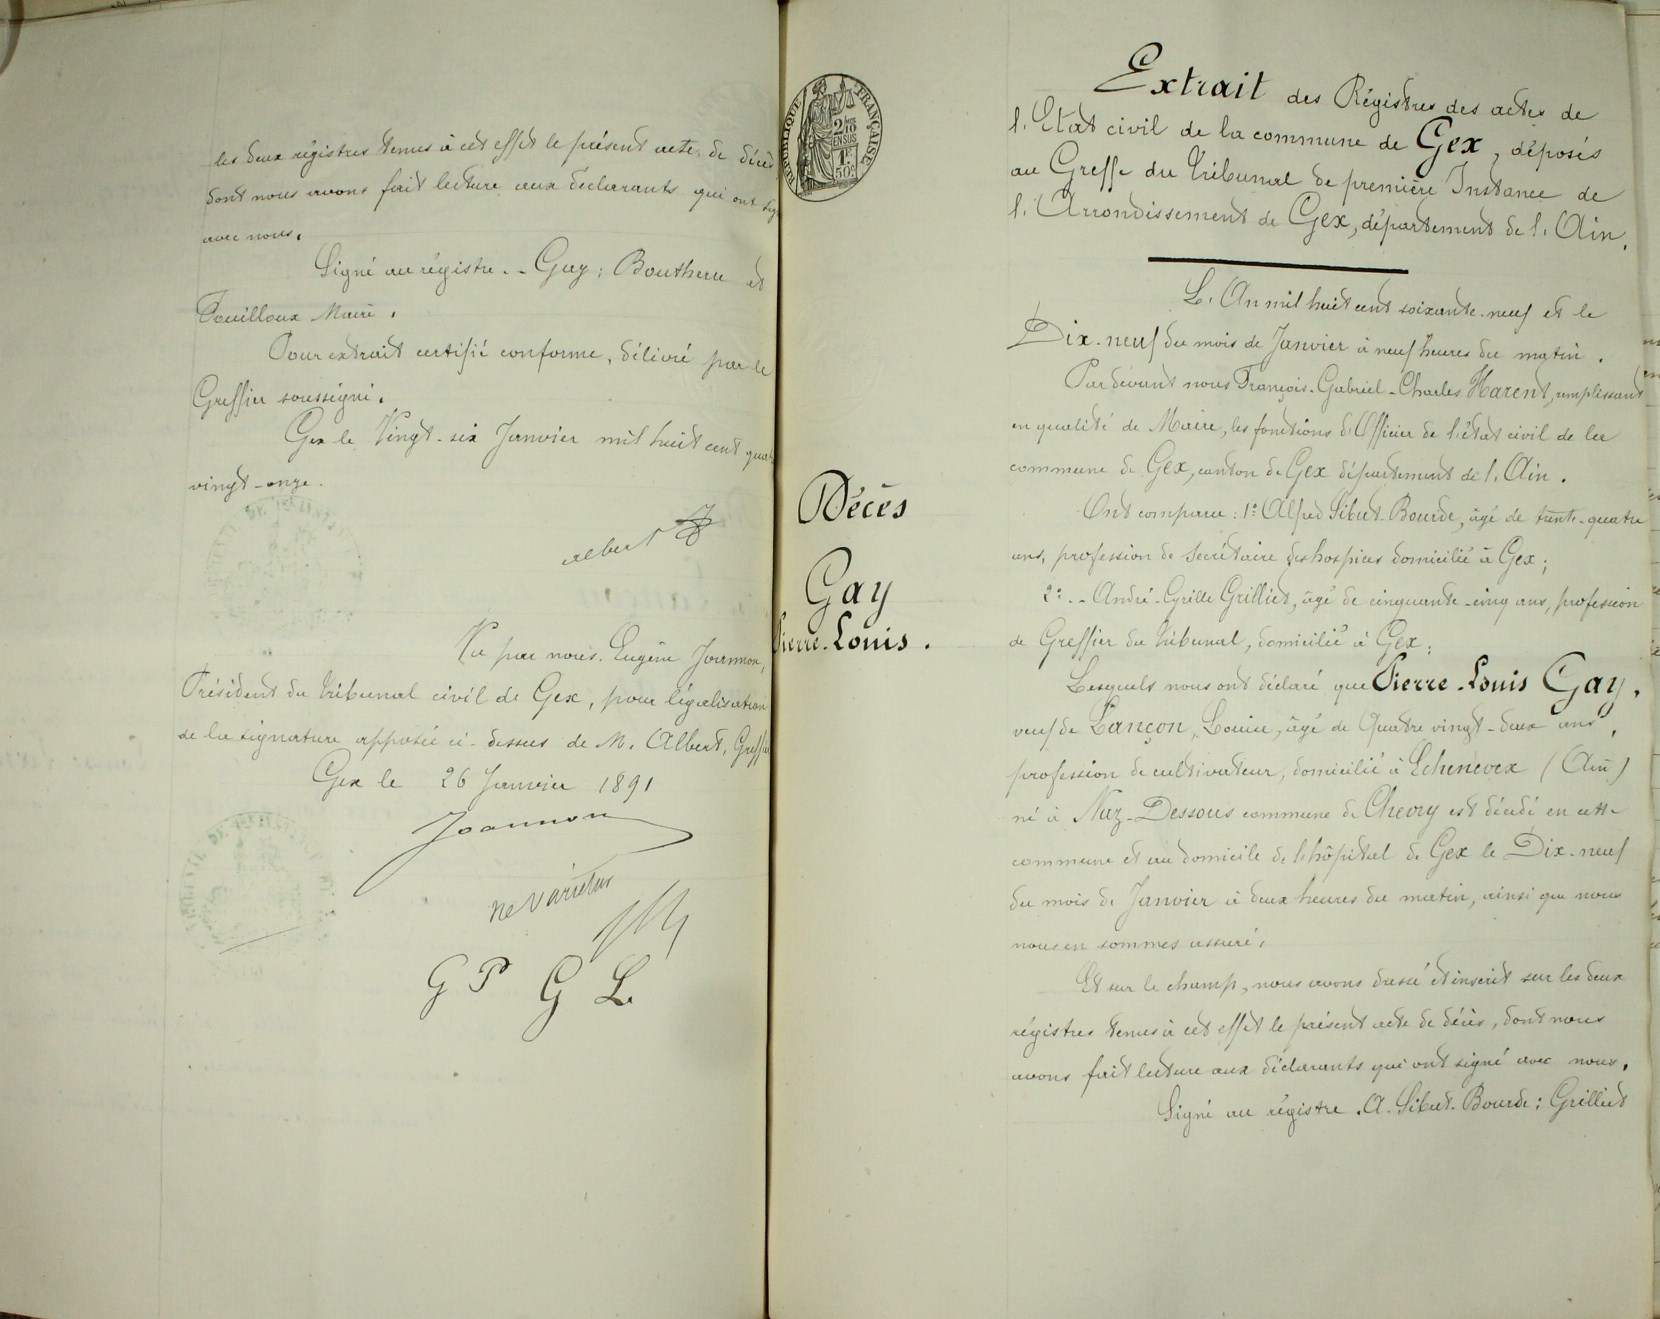 les deux régistres tenus à cet effet le présent acte de décès
dont nous avons fait lecture aux déclarants qui ont sig
avec nous.
Signé au régistre. - Gay; Bouthern et
Fouilloux Maire.
Pour extrait certifié conforme, délivré par le
Greffier soussigné.
Gex le Vingt-six Janvier mil huit cent quat
vingt-onze.
Albert
Vu par nous. Eugène Joannon,
Président du Tribunal civil de Gex, pour légalisation
de la signature apposée ci-dessus de M. Albert, Greffier
Gex le 26 Janvier 1891
Joannon
Ne varietur
G P G L
RÉPUBLIQUE FRANÇAISE
2/10
EN SUS
1F
50c
Décès
Gay
Pierre-Louis.
Extrait des Régistres des actes de
l'Etat civil de la commune de Gex, déposés
au Greffe du Tribunal de première Instance de
l'Arrondissement de Gex, département de l'Ain.
L'An mil huit cent soixante-neuf et le
Dix-neuf du mois de Janvier à neuf heures du matin.
Par devant nous François-Gabriel-Charles Harent, remplissant
en qualité de Maire, les fonctions d'Officier de l'état civil de la
commune de Gex, canton de Gex département de l'Ain.
Ont comparu: 1° Alfred Sibut-Bourde, âgé de trente-quatre
ans, profession de Secrétaire des hospices domicilié à Gex;
2°.- André-Cyrille Grilliet, âgé de cinquante-cinq ans, profession
de Greffier du Tribunal, domicilié à Gex;
Lesquels nous ont déclaré que Pierre-Louis Gay,
veuf de Lançon, Louise, âgé de Quatre vingt-deux ans,
profession de cultivateur, domicilié à Echenevex (Ain)
né à Naz-Dessous commune de Chevry est décédé en cette
commune et au domicile de l'hôpital de Gex le Dix-neuf
du mois de Janvier à deux heures du matin, ainsi que nous
nous en sommes assuré.
Et sur le champ, nous avons dressé et inscrit sur les deux
régistres tenus à cet effet le présent acte de décès, dont nous
avons fait lecture aux déclarants qui ont signé avec nous.
Signé au régistre. A. Sibut-Bourde; Grilliet